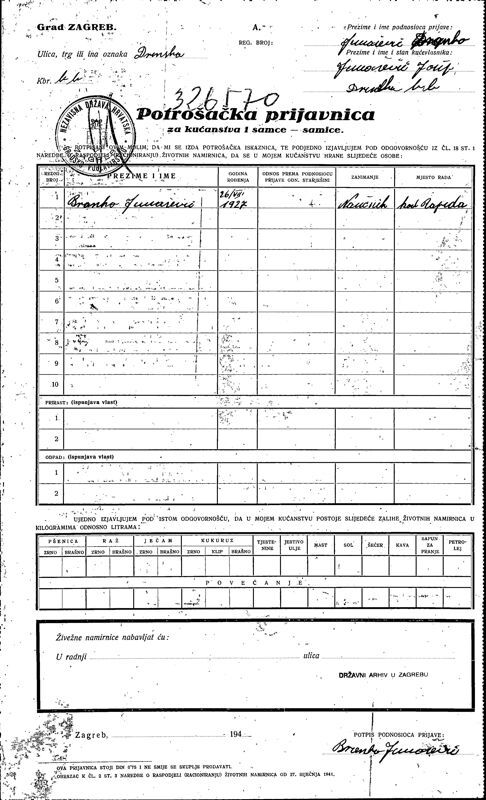 Grad ZAGREB.
A.
Prezime i ime podnosioca prijave:
REG. BROJ:
Jumarević Branko
Ulica, trg ili ina oznaka Drenska
Prezime i ime i stan kućevlasnika:
Jumarević Josip
Kbr. b.b.
Drenska b.b.
326570
NEZAVISNA DRŽAVA HRVATSKA
Potrošačka prijavnica
za kućanstva i samce — samice.
POTPISANI OVIM MOLIM, DA MI SE IZDA POTROŠAČKA ISKAZNICA, TE PODJEDNO IZJAVLJUJEM POD ODGOVORNOŠĆU IZ ČL. 18 ST. 1
NAREDBE O RASPODJELI (RACIONIRANJU) ŽIVOTNIH NAMIRNICA, DA SE U MOJEM KUĆANSTVU HRANE SLIJEDEĆE OSOBE:
REDNI BROJ PREZIME I IME GODINA ROĐENJA ODNOS PREMA PODNOSIOCU PRIJAVE ODN. STARJEŠINI ZANIMANJE MJESTO RADA
1 Branko Jumarević 26/VII. 1927 Naučnik kod
2
3
4
5
6
7
8
9
10
PRIRAST: (ispunjava vlast)
1
2
ODPAD: (ispunjava vlast)
1
2
UJEDNO IZJAVLJUJEM POD ISTOM ODGOVORNOŠĆU, DA U MOJEM KUĆANSTVU POSTOJE SLIJEDEĆE ZALIHE ŽIVOTNIH NAMIRNICA U
KILOGRAMIMA ODNOSNO LITRAMA:
PŠENICA RAŽ JEČAM KUKURUZ TJESTENINE JESTIVO ULJE MAST SOL ŠEĆER KAVA SAPUN ZA PRANJE PETROLEJ
ZRNO BRAŠNO ZRNO BRAŠNO ZRNO BRAŠNO ZRNO KLIP BRAŠNO
POVEĆANJE
Živežne namirnice nabavljat ću:
U radnji ulica
DRŽAVNI ARHIV U ZAGREBU
Zagreb, 194
POTPIS PODNOSIOCA PRIJAVE:
Branko Jumarević
OVA PRIJAVNICA STOJI DIN 0'75 I NE SMIJE SE SKUPLJE PRODAVATI.
OBRAZAC K ČL. 2 ST. 3 NAREDBE O RASPODJELI (RACIONIRANJU) ŽIVOTNIH NAMIRNICA OD 27. SIJEČNJA 1941.